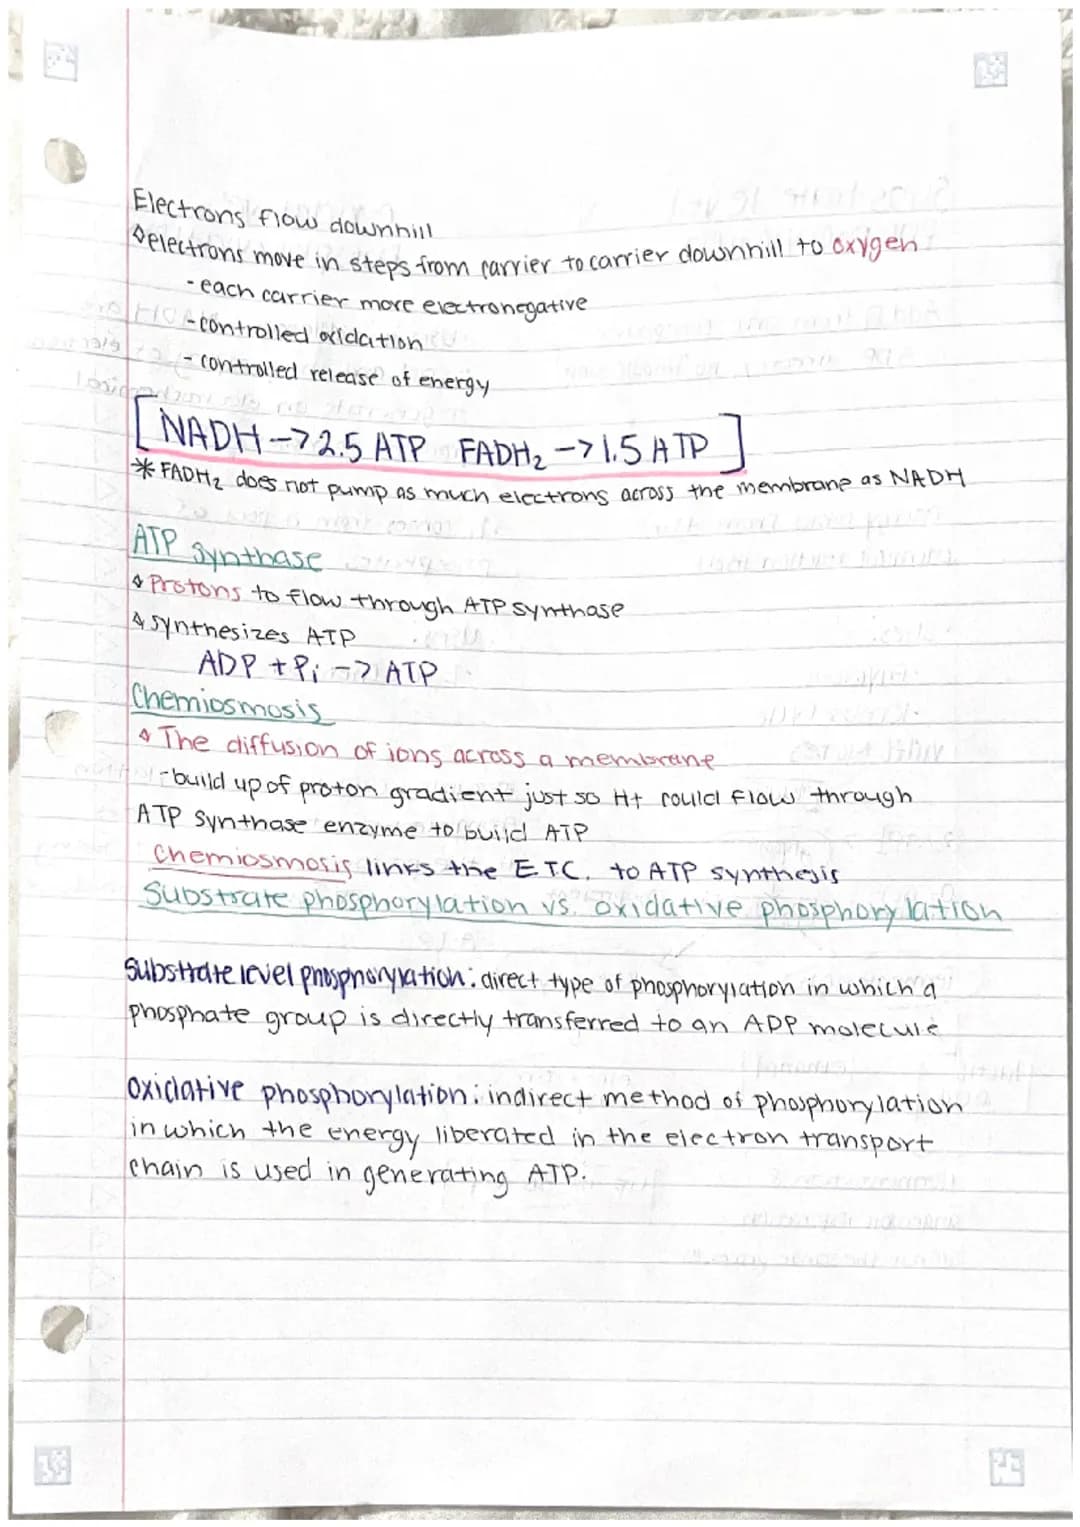 Electrons flow downhill
electrons move in steps from carrier to carrier downhill to oxygen
- each carrier more electronegative
- controlled oxidation
- controlled release of energy
[NADH -> 2.5 ATP FADH₂ -> 1.5 ATP]
* FADH₂ does not pump as much electrons across the membrane as NADH
ATP synthase
Protons to flow through ATP synthase
synthesizes ATP
ADP + Pi -> ATP
Chemiosmosis
The diffusion of ions across a membrane
- build up of proton gradient just so H+ could flow through
ATP synthase enzyme to build ATP
Chemiosmosis links the E TC. to ATP synthesis
Substrate phosphorylation vs. oxidative phosphorylation
Substrate level phosphorylation: direct type of phosphorylation in which a
phosphate group is directly transferred to an ADP molecule
Oxidative phosphorylation: indirect method of phosphorylation
in which the energy liberated in the electron transport
chain is used in generating ATP.